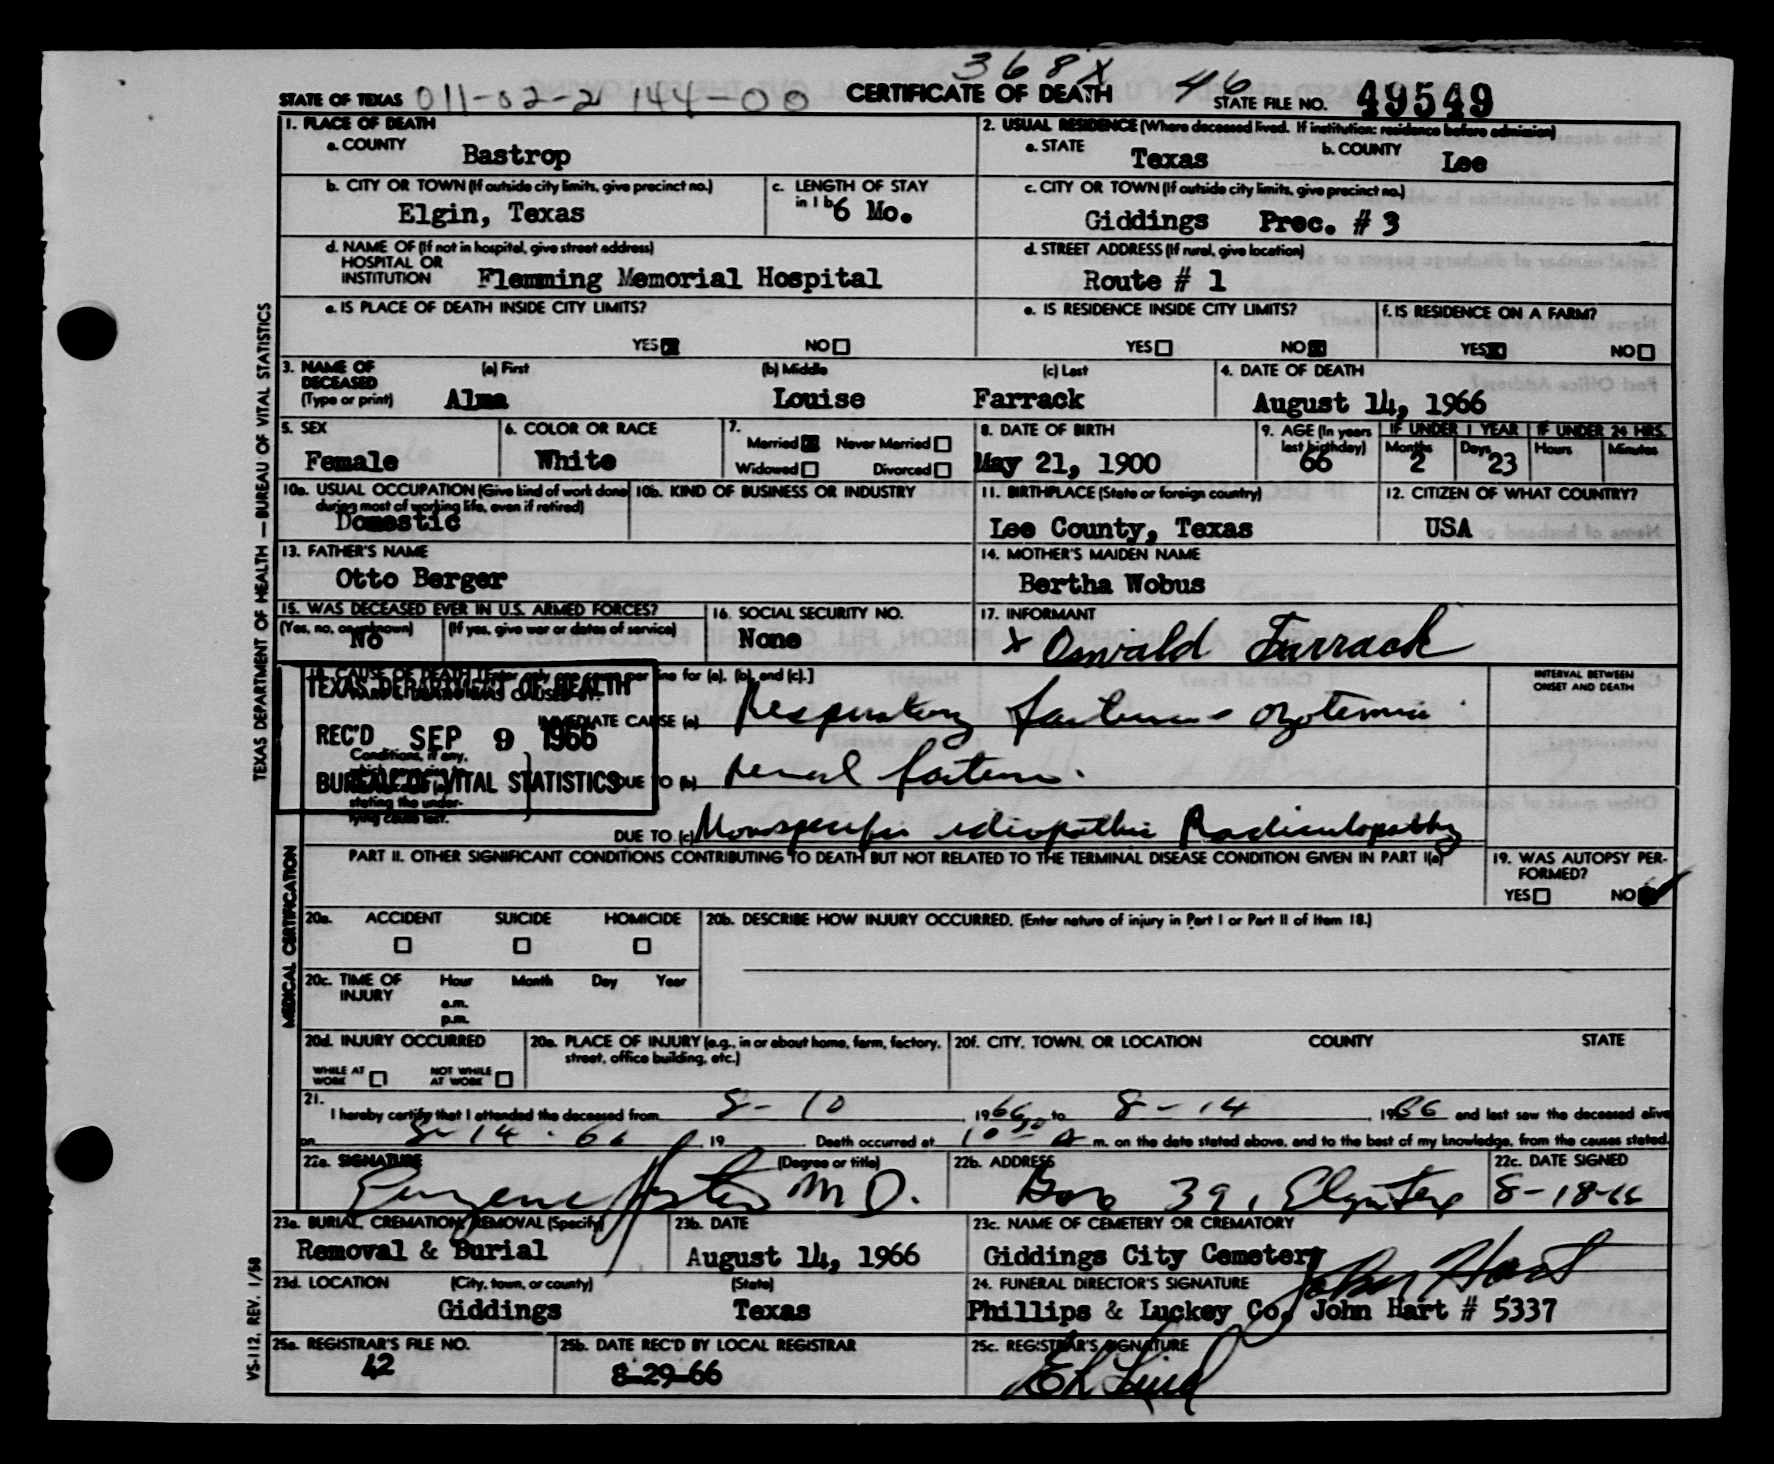 368X
STATE OF TEXAS 011-02-2 144-00 CERTIFICATE OF DEATH 46 STATE FILE NO. 49549
TEXAS DEPARTMENT OF HEALTH — BUREAU OF VITAL STATISTICS
1. PLACE OF DEATH
a. COUNTY Bastrop
2. USUAL RESIDENCE (Where deceased lived. If institution: residence before admission)
a. STATE Texas b. COUNTY Lee
b. CITY OR TOWN (If outside city limits, give precinct no.) Elgin, Texas
c. LENGTH OF STAY in 1 b 6 Mo.
c. CITY OR TOWN (If outside city limits, give precinct no.)
Giddings Prec. # 3
d. NAME OF (If not in hospital, give street address)
HOSPITAL OR
INSTITUTION Flemming Memorial Hospital
d. STREET ADDRESS (If rural, give location)
Route # 1
e. IS PLACE OF DEATH INSIDE CITY LIMITS?
YES NO
e. IS RESIDENCE INSIDE CITY LIMITS?
YES NO
f. IS RESIDENCE ON A FARM?
YES NO
3. NAME OF DECEASED (Type or print)
(a) First (b) Middle (c) Last
Alma Louise Farrack
4. DATE OF DEATH
August 14, 1966
5. SEX
Female
6. COLOR OR RACE
White
7.
Married Never Married
Widowed Divorced
8. DATE OF BIRTH
May 21, 1900
9. AGE (In years last birthday)
66
IF UNDER 1 YEAR
Months 2 Days 23
IF UNDER 24 HRS.
Hours Minutes
10a. USUAL OCCUPATION (Give kind of work done during most of working life, even if retired)
Domestic
10b. KIND OF BUSINESS OR INDUSTRY
11. BIRTHPLACE (State or foreign country)
Lee County, Texas
12. CITIZEN OF WHAT COUNTRY?
USA
13. FATHER'S NAME
Otto Berger
14. MOTHER'S MAIDEN NAME
Bertha Wobus
15. WAS DECEASED EVER IN U.S. ARMED FORCES?
(Yes, no, or unknown) (If yes, give war or dates of service)
No
16. SOCIAL SECURITY NO.
None
17. INFORMANT
x Oswald Farrack
MEDICAL CERTIFICATION
18. CAUSE OF DEATH [Enter only one cause per line for (a), (b), and (c).]
TEXAS DEPARTMENT OF HEALTH
REC'D SEP 9 1966
BUREAU OF VITAL STATISTICS
INTERVAL BETWEEN
ONSET AND DEATH
IMMEDIATE CAUSE (a) Respiratory failure - azotemia
Conditions, if any,
stating the under-
lying cause last.
DUE TO (b) renal failure.
DUE TO (c) idiopathic Radiculopathy
PART II. OTHER SIGNIFICANT CONDITIONS CONTRIBUTING TO DEATH BUT NOT RELATED TO THE TERMINAL DISEASE CONDITION GIVEN IN PART I(a)
19. WAS AUTOPSY PER-
FORMED?
YES NO
20a. ACCIDENT SUICIDE HOMICIDE
20b. DESCRIBE HOW INJURY OCCURRED. (Enter nature of injury in Part I or Part II of Item 18.)
20c. TIME OF INJURY Hour Month Day Year
a.m.
p.m.
20d. INJURY OCCURRED
WHILE AT WORK NOT WHILE AT WORK
20e. PLACE OF INJURY (e.g., in or about home, farm, factory, street, office building, etc.)
20f. CITY, TOWN, OR LOCATION COUNTY STATE
21.
I hereby certify that I attended the deceased from 8-10, 1966 to 8-14, 1966 and last saw the deceased alive
on 8-14-66, 19 . Death occurred at 10 30 a m. on the date stated above, and to the best of my knowledge, from the causes stated.
22a. SIGNATURE (Degree or title)
Eugene M D.
22b. ADDRESS
Box 39, Elgin Tex
22c. DATE SIGNED
8-18-66
23a. BURIAL, CREMATION, REMOVAL (Specify)
Removal & Burial
23b. DATE
August 14, 1966
23c. NAME OF CEMETERY OR CREMATORY
Giddings City Cemetery
23d. LOCATION (City, town, or county) (State)
Giddings Texas
24. FUNERAL DIRECTOR'S SIGNATURE
John Hart
Phillips & Luckey Co. John Hart # 5337
25a. REGISTRAR'S FILE NO.
42
25b. DATE REC'D BY LOCAL REGISTRAR
8-29-66
25c. REGISTRAR'S SIGNATURE
VS-112. REV. 1/58